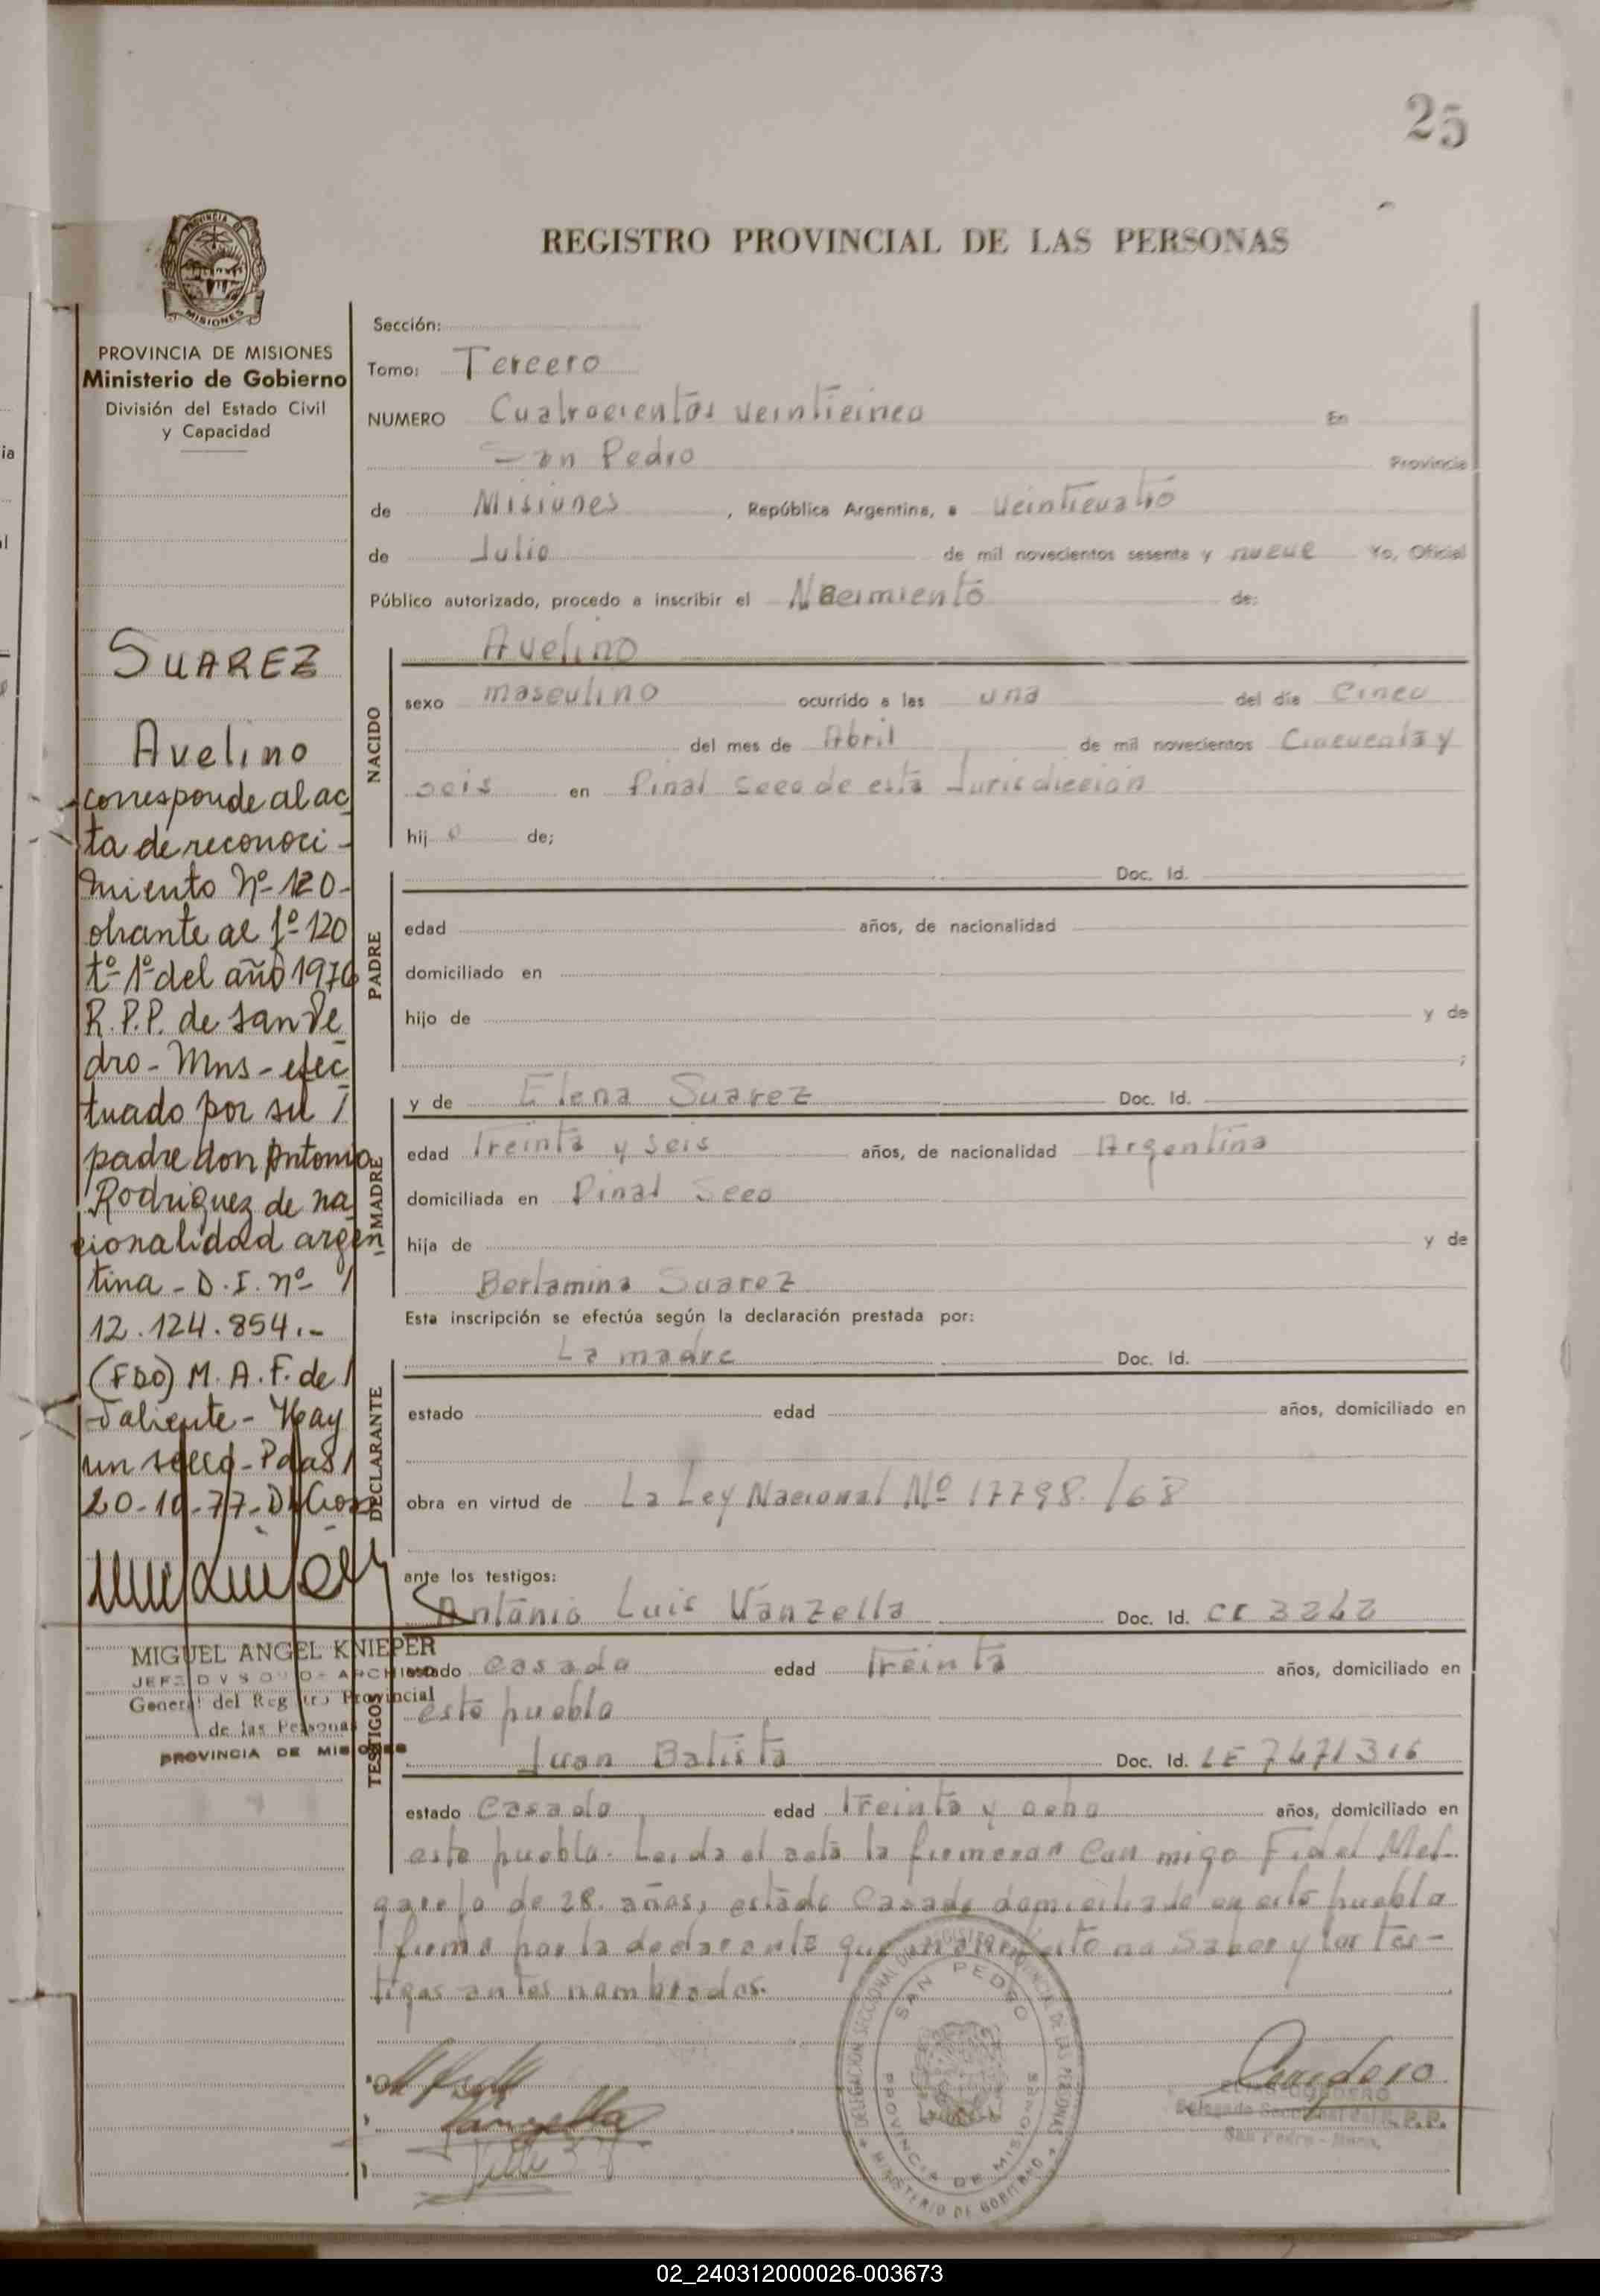 25
REGISTRO PROVINCIAL DE LAS PERSONAS
PROVINCIA
MISIONES
PROVINCIA DE MISIONES
Ministerio de Gobierno
División del Estado Civil
y Capacidad
SUAREZ
Avelino
corresponde al ac
ta de reconoci-
miento Nº 120-
obrante al fº 120
tº 1º del año 1976
R.P.P. de San Pe
dro - Mns - efec
tuado por su /
padre don Antonio
Rodriguez de na
cionalidad argen
tina - D.I. nº /
12.124.854.-
(FDO) M. A. F. de /
Valiente - Hay
un sello - Pdas /
20-10-77-
MIGUEL ANGEL KNIEPER
General del Registro Provincial
de las Personas
PROVINCIA DE MISIONES
Sección:
Tomo: Tercero
NUMERO Cuatrocientos veinticinco En
San Pedro Provincia
de Misiones, República Argentina, a veinticuatro
de Julio de mil novecientos sesenta y nueve Yo, Oficial
Público autorizado, procedo a inscribir el Nacimiento de:
NACIDO
Avelino
sexo masculino ocurrido a las una del día cinco
del mes de Abril de mil novecientos Cincuenta y
seis en Pinal Seco de esta Jurisdiccion
hijo de;
PADRE
Doc. Id.
edad años, de nacionalidad
domiciliado en
hijo de y de
;
MADRE
y de Elena Suarez Doc. Id.
edad Treinta y seis años, de nacionalidad Argentina
domiciliada en Pinal Seco
hija de y de
Berlamina Suarez
Esta inscripción se efectúa según la declaración prestada por:
DECLARANTE
La madre Doc. Id.
estado edad años, domiciliado en
obra en virtud de La Ley Nacional Nº 17798./68
ante los testigos:
TESTIGOS
Antonio Luis Vanzella Doc. Id. CI 3242
estado casado edad Treinta años, domiciliado en
este pueblo
Juan Batista Doc. Id. LE 7471316
estado Casado edad Treinta y ocho años, domiciliado en
este pueblo. Leida el acta la firmaran Con migo Fidel Mel-
garejo de 28. años, estado Casado domiciliado en este pueblo
firma por la declarante que manifesto no Saber y los tes-
tigos antes nombrados.
DELEGACION SECCIONAL DEL REGISTRO PROVINCIAL DE LAS PERSONAS
SAN PEDRO
PROVINCIA DE MISIONES
MINISTERIO DE GOBIERNO
Vanzella
Cordero
CORDERO
Delegado Seccional del R.P.P.
San Pedro - Mnes.
02_240312000026-003673